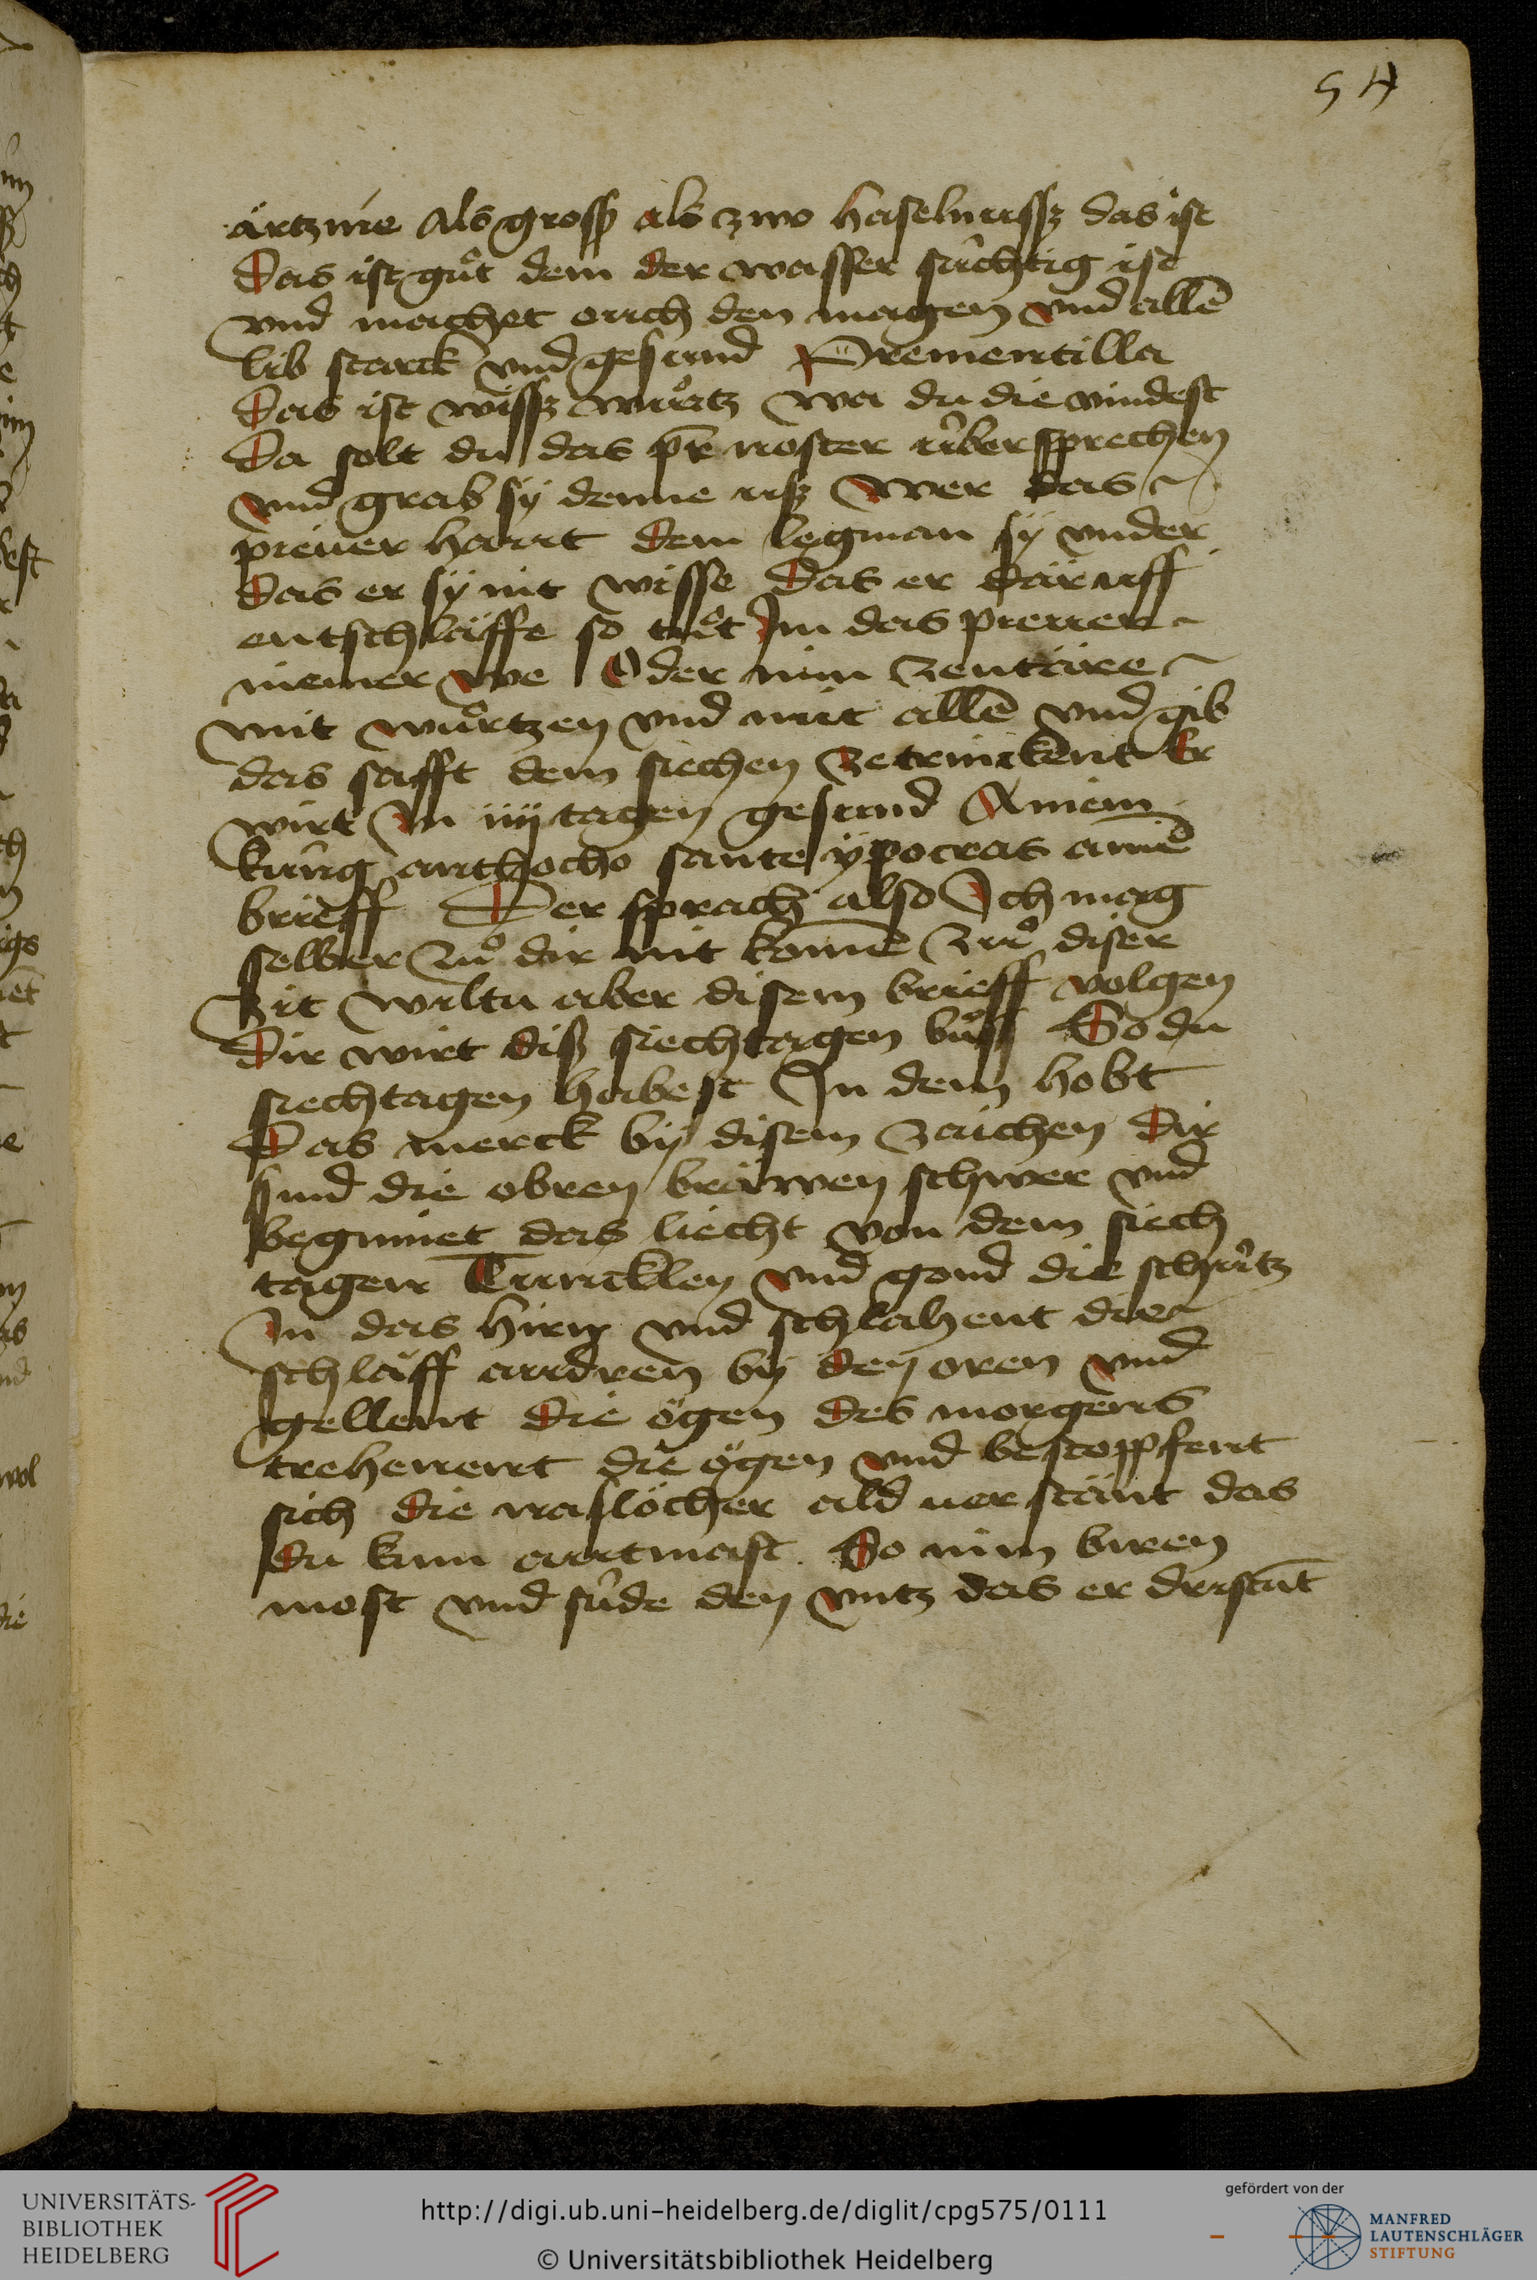 54
ärtznie Als gross als zwo haselnussz das ist
Das ist gůt dem der wasser súchtig ist
vnd machet ouch den magen vnd allē
lib starck vnd gesund Prementilla
Das ist wissz wůrtz wa du die vindest
Da solt du das pr̄ noster úber sprechen
vnd grab sÿ denne usz Wer das
preuer haut dem leg man sÿ vnder
Das er sÿ nit wisse Das er dar uff
entschlaͤffe so tůt Im das preuer
niemer we Oder nim zentaire
mit wůrtzen vnd mit allē vnd gib
das safft dem siechen zetrinckent Er
wirt In iiij tagen gesund Ainem
kúng anthocho sante ÿpocras ainē
brieff Der sprach also Ich mag
selber zů dir nit komē zů diser
Zit wiltu aber disem brieff volgen
Dir wirt disz siechtagen bůsz So du
siechtagen habest In dem hobt
Das merck bÿ disem zaichen Dir
sind die obren brawen schwer vnd
beginnet das liecht von dem siech
tagen Tuncklen vnd gond die schútz
In das hirn vnd schlahent die
schlaͤff audren bÿ den oren vnd
gellent die oͤgen des morgens
trehenent die oͤgen vnd bestopfent
sich die naslöcher ald uer staͤnt das
du kum autmast So nim biren
most vnd súde den vntz das er
UNIVERSITÄTS-
BIBLIOTHEK
HEIDELBERG
http://digi.ub.uni-heidelberg.de/diglit/cpg575/0111
© Universitätsbibliothek Heidelberg
gefördert von der
MANFRED
LAUTENSCHLÄGER
STIFTUNG